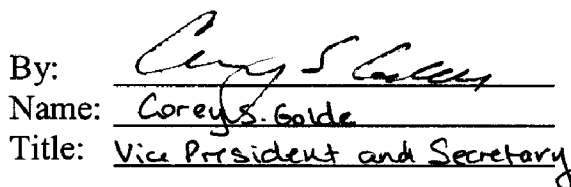 By: Corey S Golde
Name: Corey S. Golde
Title: Vice President and Secretary